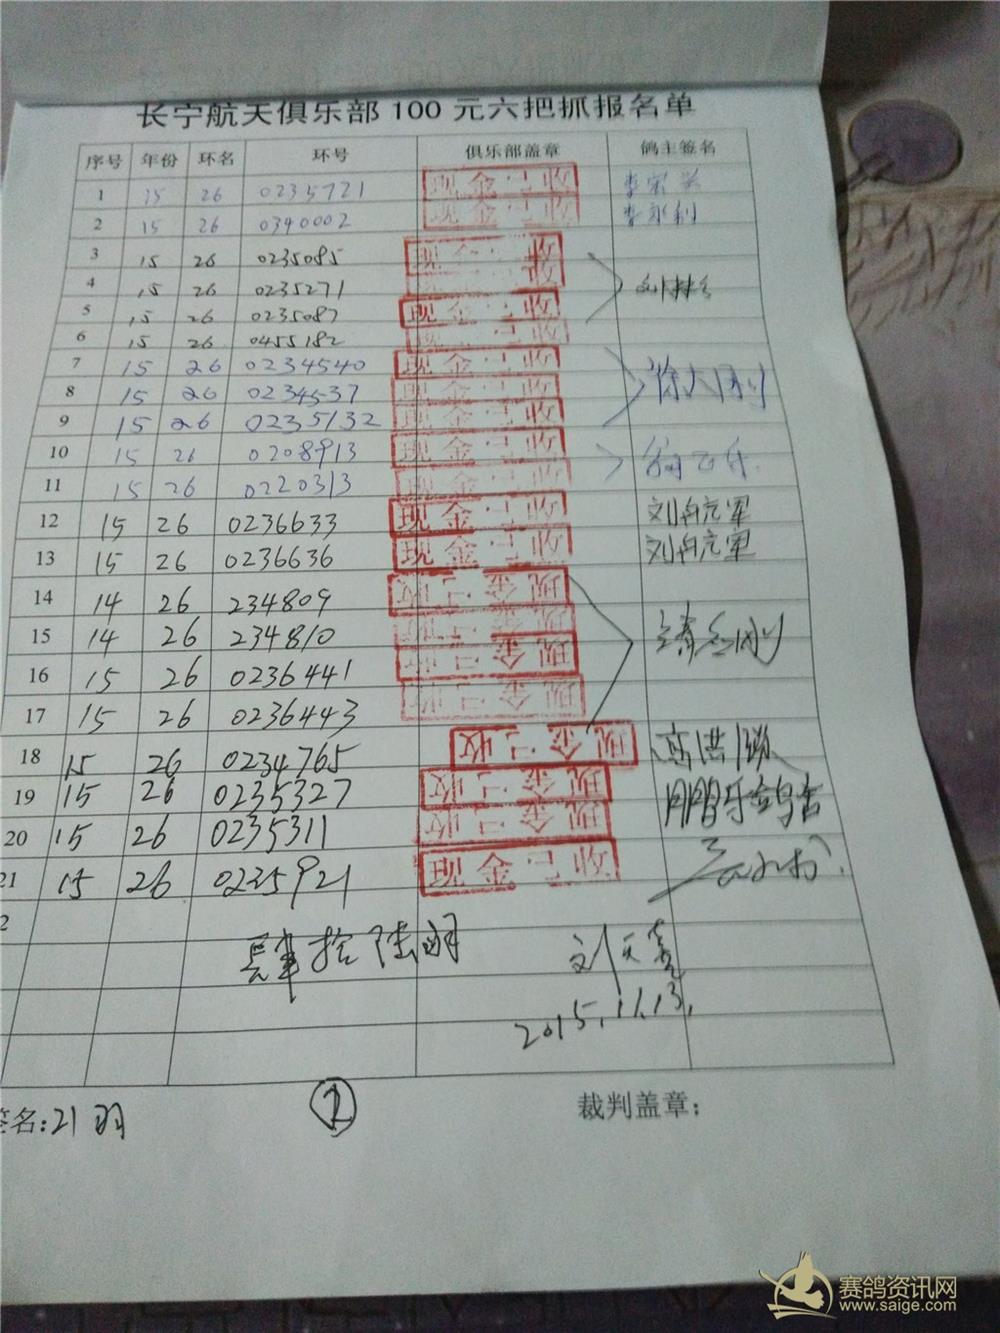 长宁航天俱乐部100元六把抓报名单
序号 年份 环名 环号 俱乐部盖章 鸽主签名
1 15 26 0235721 现金已收
2 15 26 0340002 现金已收 李永利
3 15 26 0235085 现金已收
4 15 26 0235271
5 15 26 0235087 现金已收
6 15 26 0455182 现金已收
7 15 26 0234540 现金已收
8 15 26 0234537 现金已收
9 15 26 0235132 现金已收
10 15 26 0208913 现金已收
11 15 26 0220313 现金已收
12 15 26 0236633 现金已收
13 15 26 0236636 现金已收
14 14 26 234809 现金已收
15 14 26 234810 现金已收
16 15 26 0236441 现金已收
17 15 26 0236443 现金已收
18 15 26 0234765 现金已收
19 15 26 0235327 现金已收
20 15 26 0235311 现金已收
21 15 26 0235921 现金已收
2
刘天
2015.11.13.
签名: 裁判盖章：
赛鸽资讯网
www.saige.com